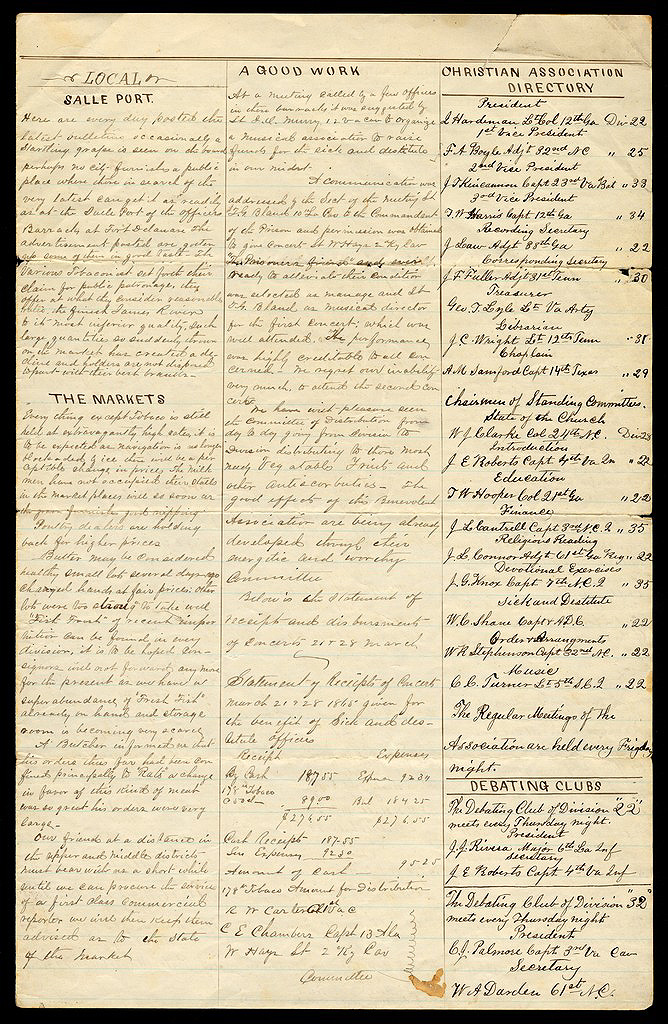 LOCAL
SALLE PORT.
Here are every day posted the
latest bulletins occasionally a
startling grape is seen on the board
perhaps no city furnishes a public
place where those in search of the
very latest can get it as readily
as at the Salle Port of the Officers
Barracks at Fort Delaware The
advertisement posted are gotten
up some of them in good taste. The
Various Tobaconist set forth their
claim for public patronage, they
offer at what they consider reasonable
rates, the finish James River
to it most inferior quality, such
large quantities so suddenly thrown
on the market has created a de-
cline and holders are not disposed
to part with their best brands.
THE MARKETS
Every thing except Tobaco is still
held at extravagantly high rates, it is
to be expected as navigation is no longer
blockaded by ice there will be a per-
ceptable change in prices. The milk
men have not occupied their stalls
in the market places will so soon as
Poultry dealers are holding
back for higher prices
Butter may be considered
healthy small lots several days ago
changed hands at fair prices. Other
lots were too strong to take well
"Fish Fresh" of recent impor
tation can be found in every
division, it is to be hoped con-
signors will not forward any more
for the present as we have a
superabundance of "Fresh Fish"
already on hand and storage
room is becoming very scarce.
A Butcher informed us that
his orders thus far had been con
fined principally to "Rats" a change
in favor of this kind of meat
was so great his orders were very
large.
Our friend at a distance in
the upper and middle districts
must bear with us a short while
until we can procure the service
of a first class Commercial
reporter we will then keep them
advised as to the State
of the Market
A GOOD WORK
At a meeting called by a few officers
in these barracks it was suggested by
Lt D.M. Murry 12 Va Cav to organize
a musical association to raise
funds for the sick and destitute
in our midst.
A communication was
addressed by the Sect of the meeting Lt
T.G. Bland 10th Va to the Commandant
of the Prison and permission was obtained
to give concert Lt W Hays 2 Ky Cav
The Prisoners friend and ever
ready to alleviate their condition
was selected as manage and Lt
T.G. Bland as musical director
for the first concert; which was
well attended. The performance
was highly creditable to all con
cerned. We regret our inability
very much, to attend the second con
cert.
We have with pleasure seen
the Committee of Distribution from
day to day going from Division to
Division distributing to those most
needy Vegatables Fruit and
other anti scorbutics. The
good effects of this Benevolent
Association are being already
developed through their
energetic and worthy
Committee
Below is the Statement of
receipts and disbursments
of Concerts 21 & 28 March
Statement of Receipts of Concerts
March 21 & 28 1865 given for
the benefit of Sick and des-
titute officers
Receipts Expenses
By Cash 187 55 Expense 92 30
178 lbs Tobaco
89 00 Bal 184 25
$276.55 $276.55
Cash Receipts 187-55
Less Expenses 92 30
Amount of Cash 95-25
178 lbs Tobaco Amount for Distribution
R W Carter Va C
C E Chambers Capt 13 Ala
W Hays Lt 2 Ky Cav
Committee
CHRISTIAN ASSOCIATION
DIRECTORY
President
J Hardeman Lt Col 12th Ga Div 22
1st Vice President
F. A Boyle Adjt 32nd N.C " 25
2nd Vice President
J T Kincannon Capt 23rd Va Bat " 33
3rd Vice President
T. W Harris Capt 12th Ga " 34
Recording Secretary
J Law Adjt 88th Ga " 22
Corresponding Secretary
J. F. Fuller Adjt 31st Tenn " 30
Treasurer
Geo. T. Lyle Lt Va Arty
Librarian
J. C. Wright Lt 12th Tenn " 31
Chaplain
A M Samford Capt 14th Texas " 29
Chairmen of Standing Committees.
State of the Church
W J Clarke Col 24th N.C. Div 28
Introduction
J E Roberts Capt 4th Va Inf " 22
Education
T W Hooper Col 21st Ga " 22
Finance
J L Cantrell Capt 3rd N.C. 2 " 35
Religious Reading
J. L Connor Adjt 61st Ga Reg " 22
Devotional Exercises
J. G. Knox Capt 7th N.C. 2 " 35
Sick and Destitute
W. C. Shane Capt & A.D.C. " 22
Order & Arrangments
W R Stephenson Capt 32nd N.C. " 22
Music
C. C. Turner Lt 5th S.C. 2 " 22
The Regular Meetings of the
Association are held every Friday
night.
DEBATING CLUBS
The Debating Club of Division "22"
meets every Thursday night
President
J. J. Rivera Major 6th La Inf
Secretary
J. E Roberts Capt 4th Va Inf
The Debating Club of Division "32"
meets every Thursday night
President
C. J. Palmore Capt 3rd Va Cav
Secretary
W. A Darden 61st N.C.